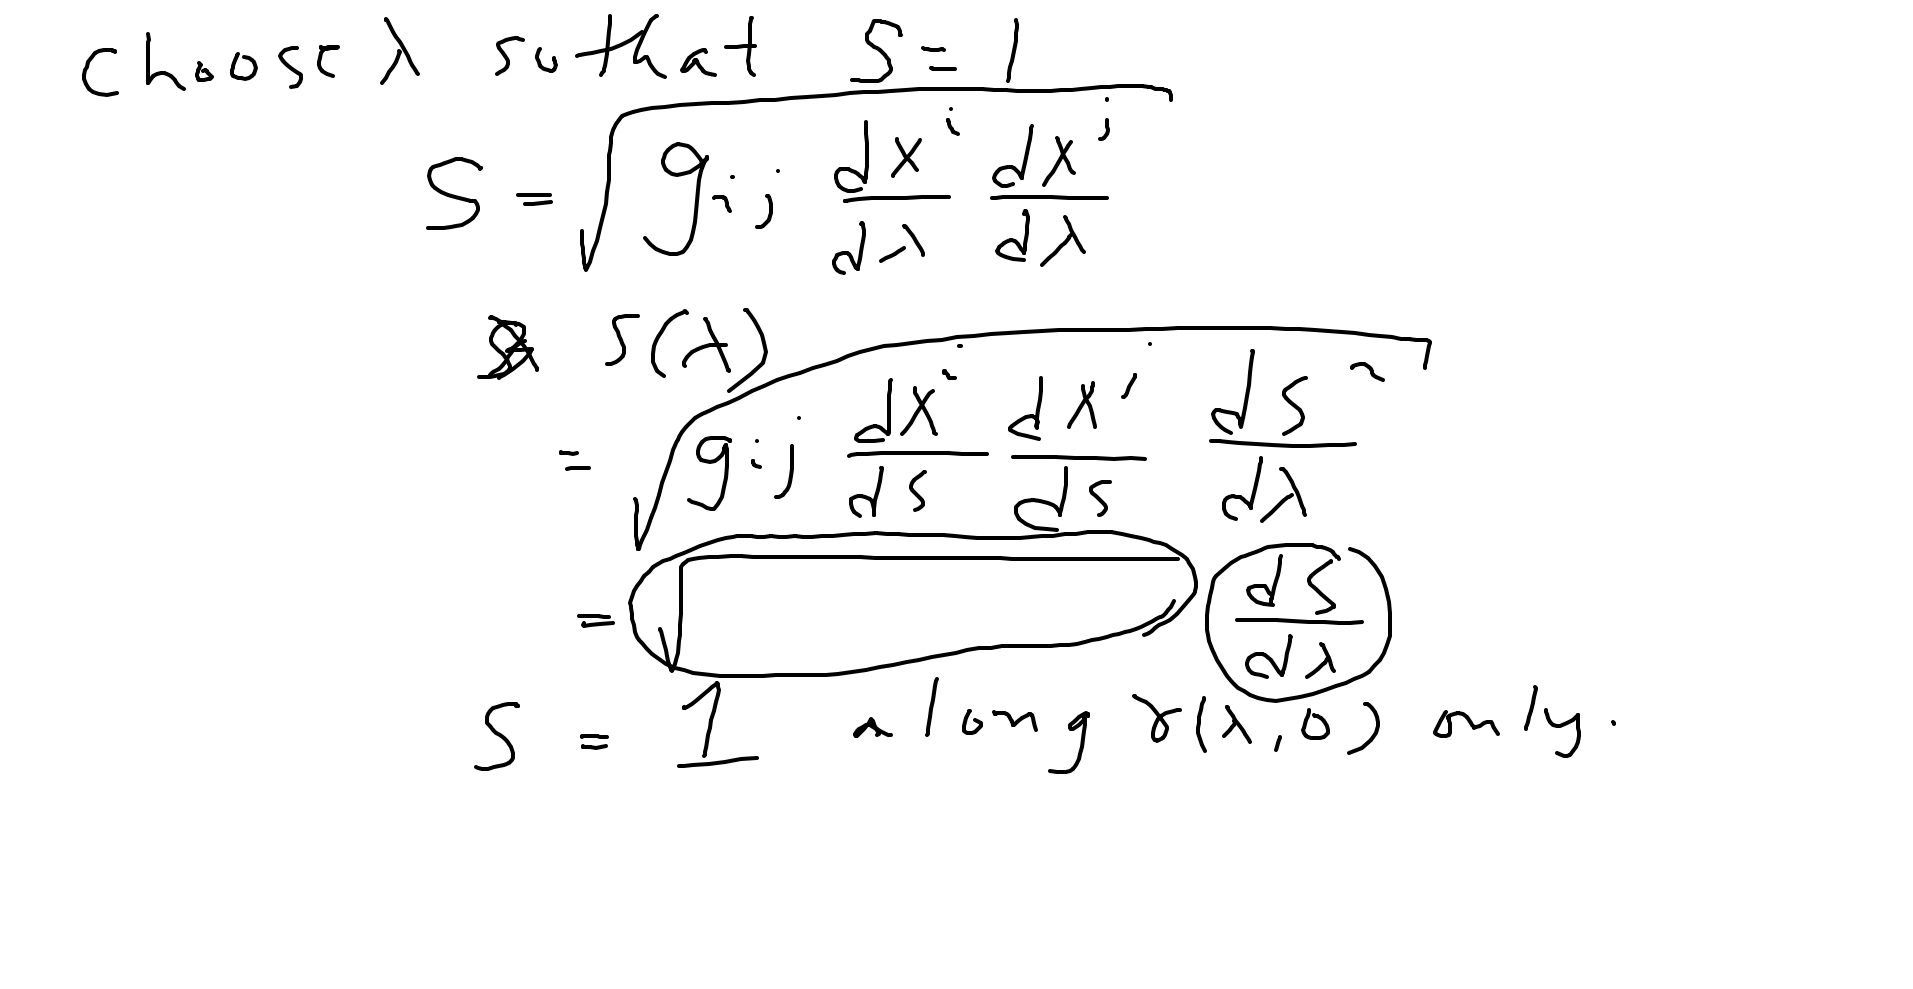 choose λ so that S = 1
S = √(g_ij dx^i/dλ dx^j/dλ)
s(λ)
= √(g_ij dx^i/ds dx^j/ds ds^2/dλ)
= √ ds/dλ
S = 1 along γ(λ,0) only.